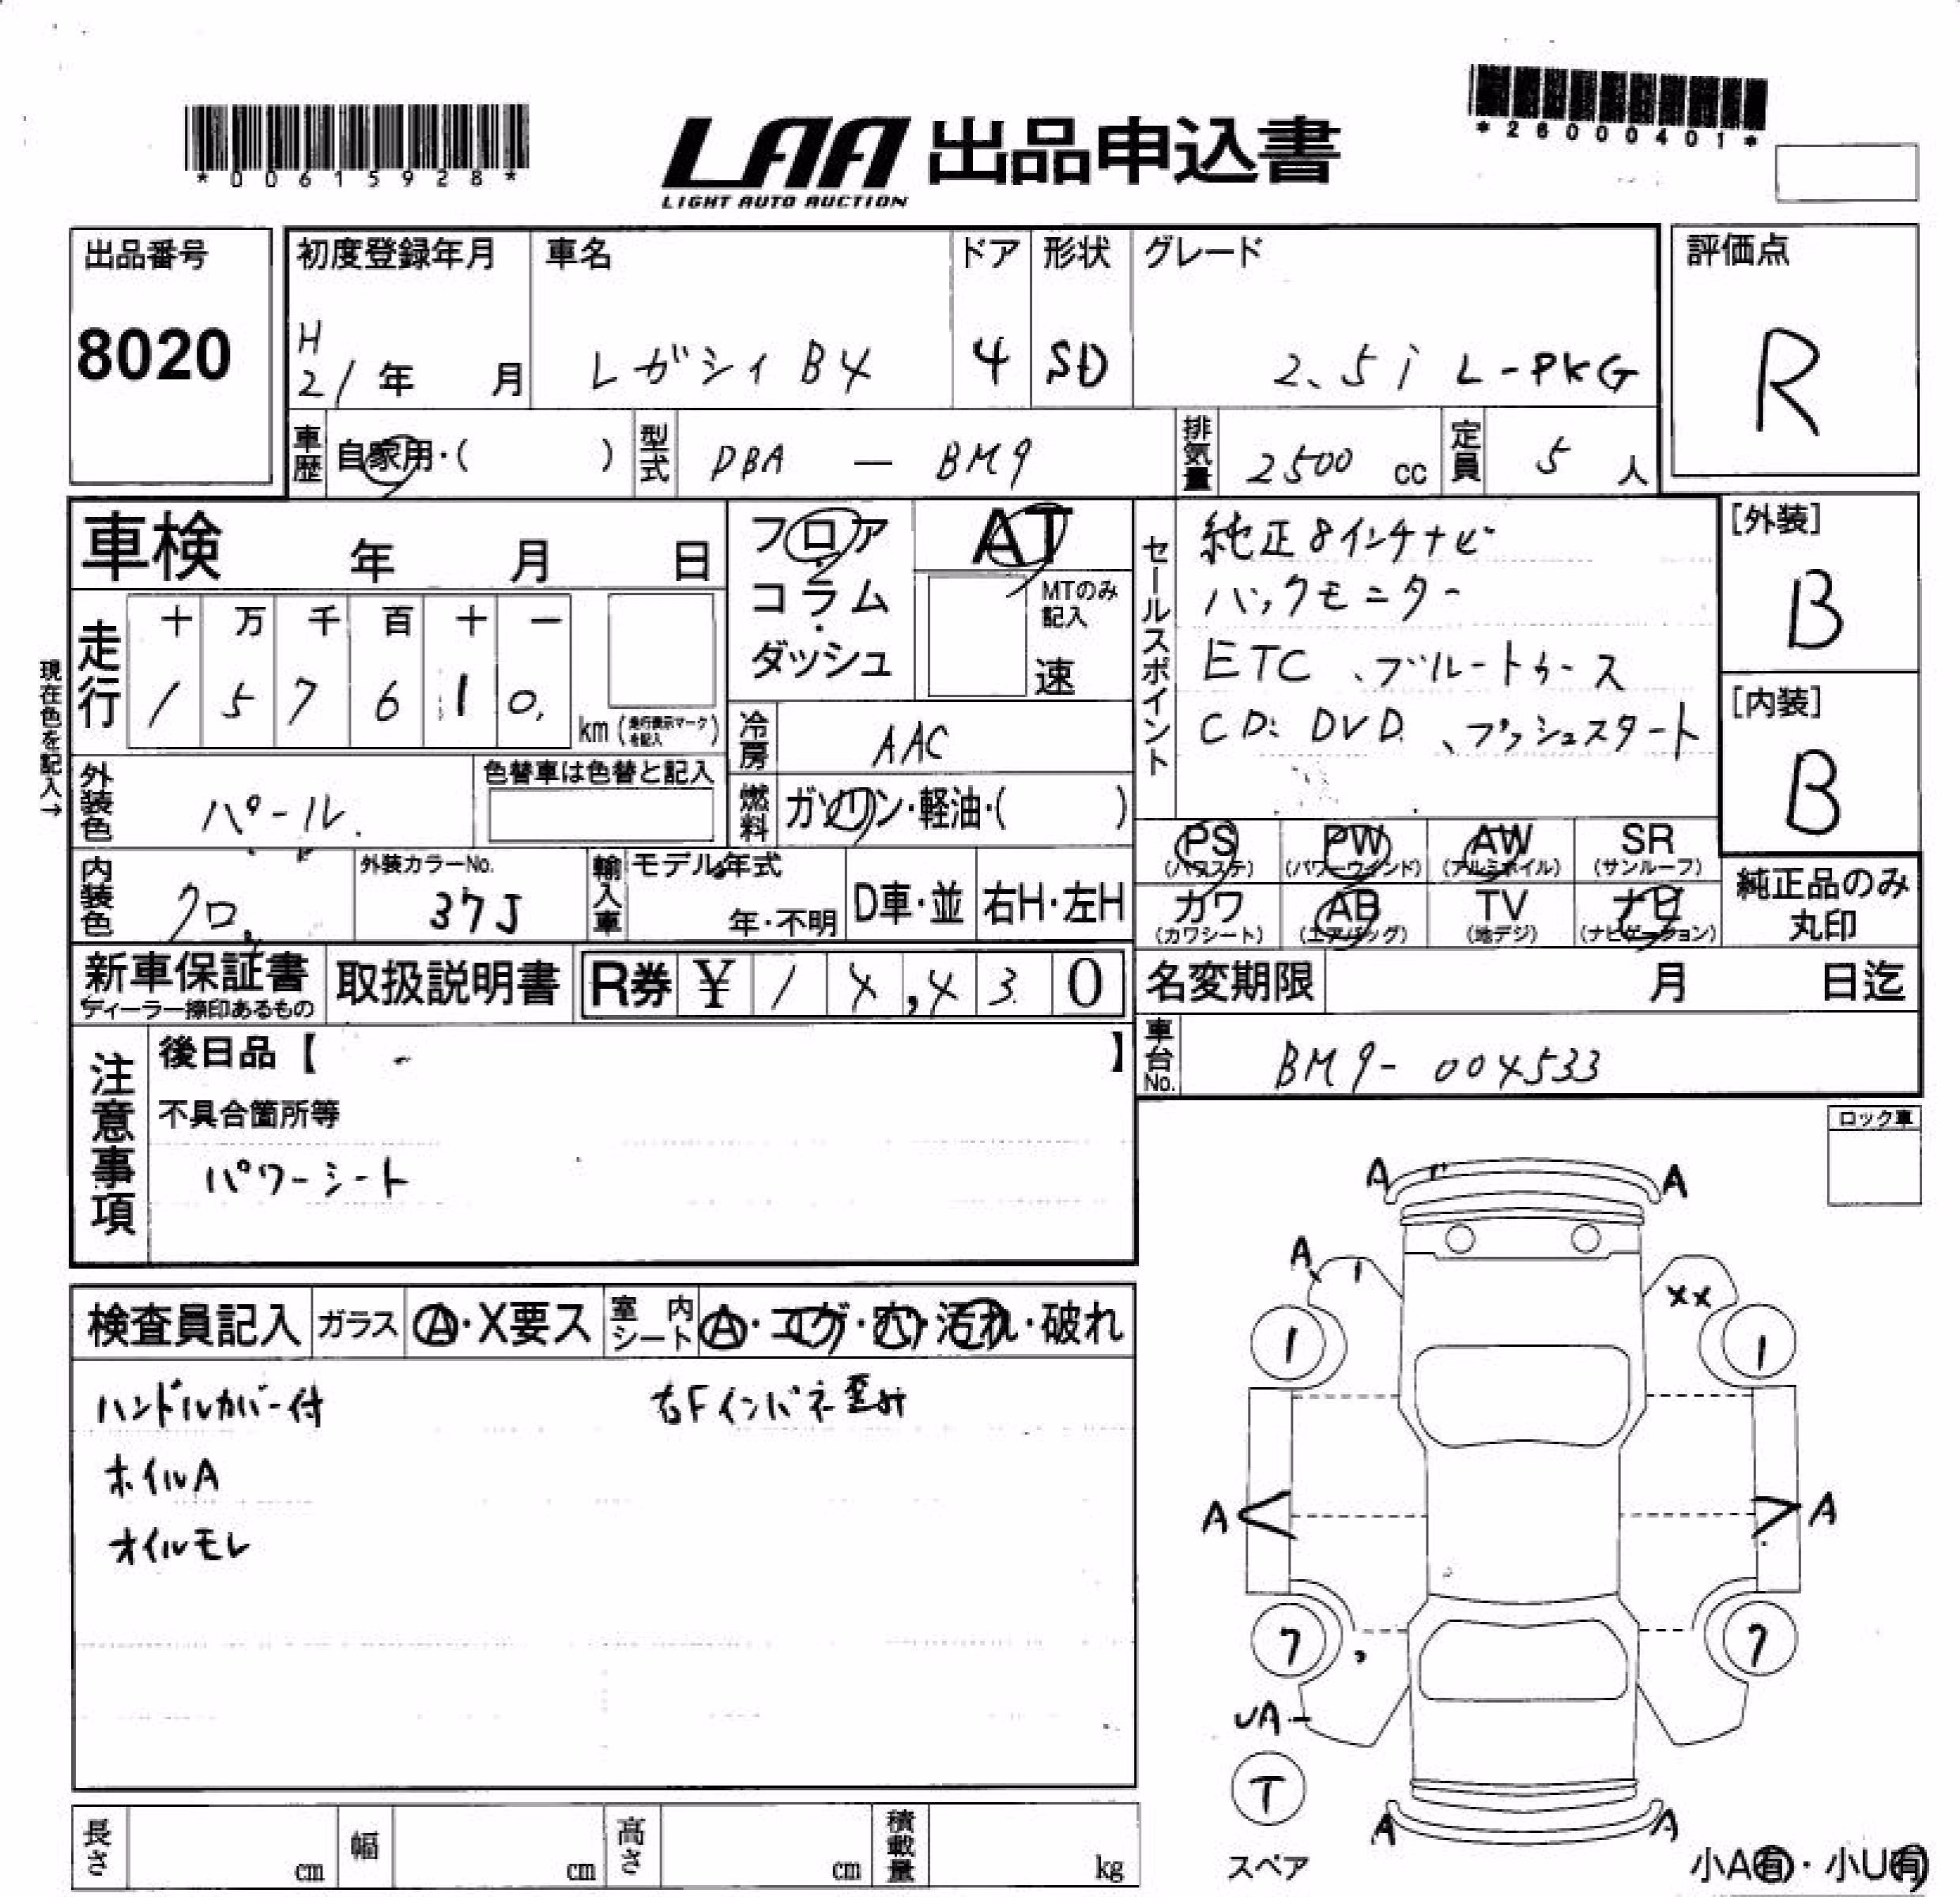 *00615928*
LAA 出品申込書
LIGHT AUTO AUCTION
*26000401*
出品番号
8020
初度登録年月
H
21年 月
車名
レガシィ B4
ドア
4
形状
SD
グレード
2.5i L-PKG
評価点
R
車歴
自家用・( )
型式
DBA — BM9
排気量
2500 cc
定員
5 人
車検 年 月 日
フロア
コラム
ダッシュ
AT
MTのみ記入
速
セールスポイント
純正8インチナビ
バックモニター
ETC、ブルートゥース
CD. DVD、プッシュスタート
[外装]
B
[内装]
B
現在色を記入→
走行
十 万 千 百 十 一
1 5 7 6 1 0
km (走行表示マークを記入)
冷房
AAC
外装色
パール.
色替車は色替と記入
燃料
ガソリン・軽油・( )
PS (パワステ)
PW (パワーウインド)
AW (アルミホイル)
SR (サンルーフ)
カワ (カワシート)
AB (エアバッグ)
TV (地デジ)
ナビ (ナビゲーション)
純正品のみ
丸印
内装色
クロ
外装カラーNo.
37J
輸入車
モデル年式
年・不明
D車・並
右H・左H
新車保証書
ディーラー捺印あるもの
取扱説明書
R券 ¥ 1 4,4 3 0
名変期限 月 日迄
車台No.
BM9-004533
注意事項
後日品【 - 】
不具合箇所等
パワーシート
ロック車
検査員記入
ガラス
A・X要ス
室内シート
A・コゲ・穴・汚れ・破れ
ハンドルカバー付
右Fインパネ歪み
ホイルA
オイルモレ
A A
A
XX
1 1
A A
7 7
UA
T
スペア
A A
小A有・小U有
長さ cm
幅 cm
高さ cm
積載量 kg